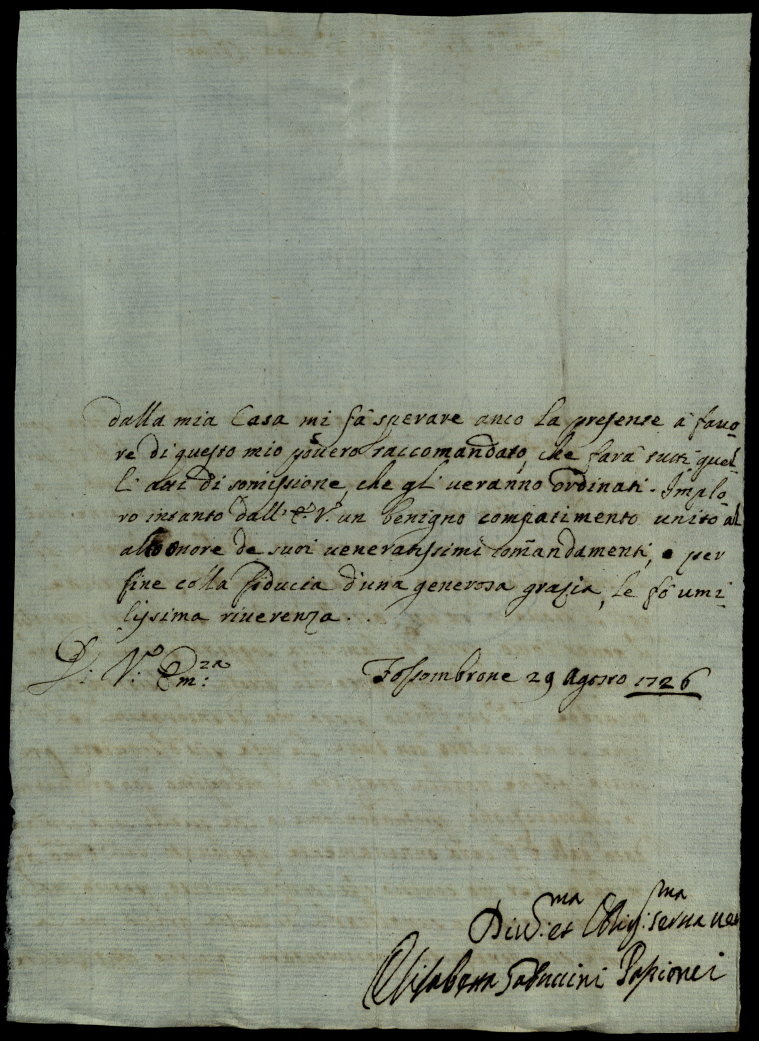 dalla mia Casa mi fà sperare anco la presente à favo
re di questo mio povero raccomandato, che farà tutti quel
li atti di somissione, che gli veranno ordinati. Implo
ro intanto dall' E. V. un benigno compatimento unito al
onore de suoi veneratissimi comandamenti, e per
fine colla fiducia d'una generosa grazia, le fò umi
lissima riverenza.
D: V: Em:za Fossombrone 29 Agosto 1726
Div:ma et Oblig:ma serva ver
Elisabetta Gabuccini Passionei